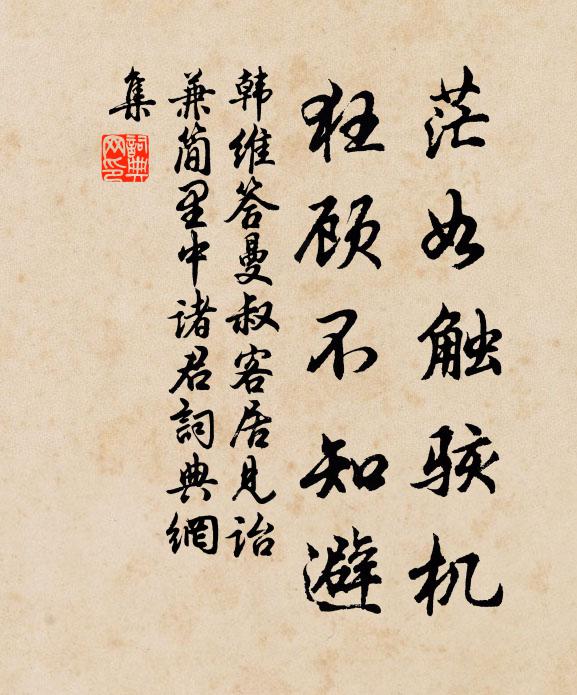 茫如触骇机
狂顾不知避
韩维答曼叔客居见诒
兼简里中诸君詞典網
集
詞典网印